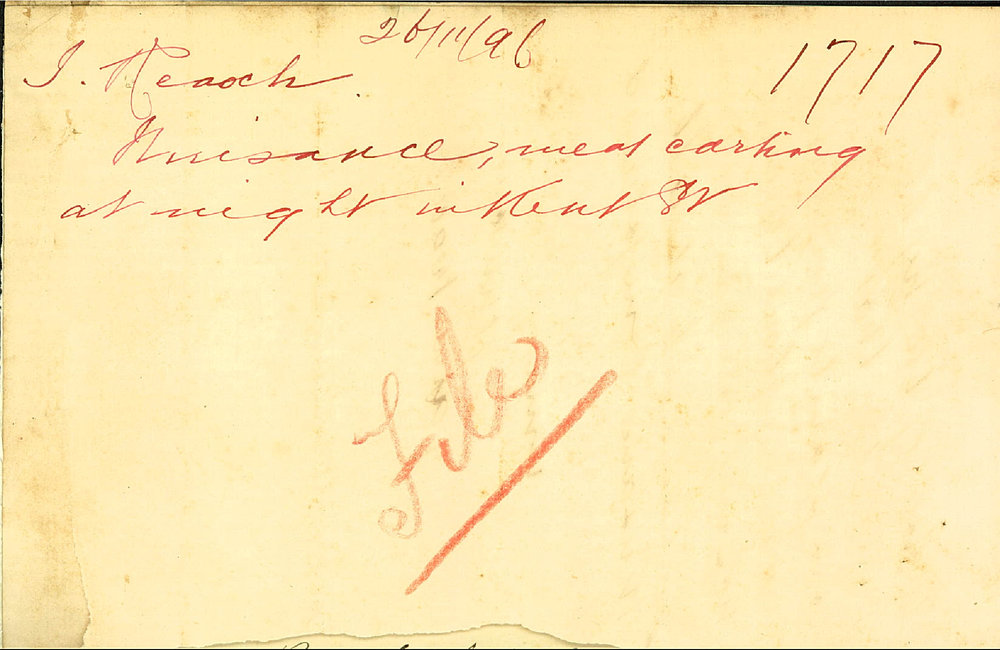 26/11/96
J. Keaoch
1717
Nuisance, meat carting
at night in Kent St
File